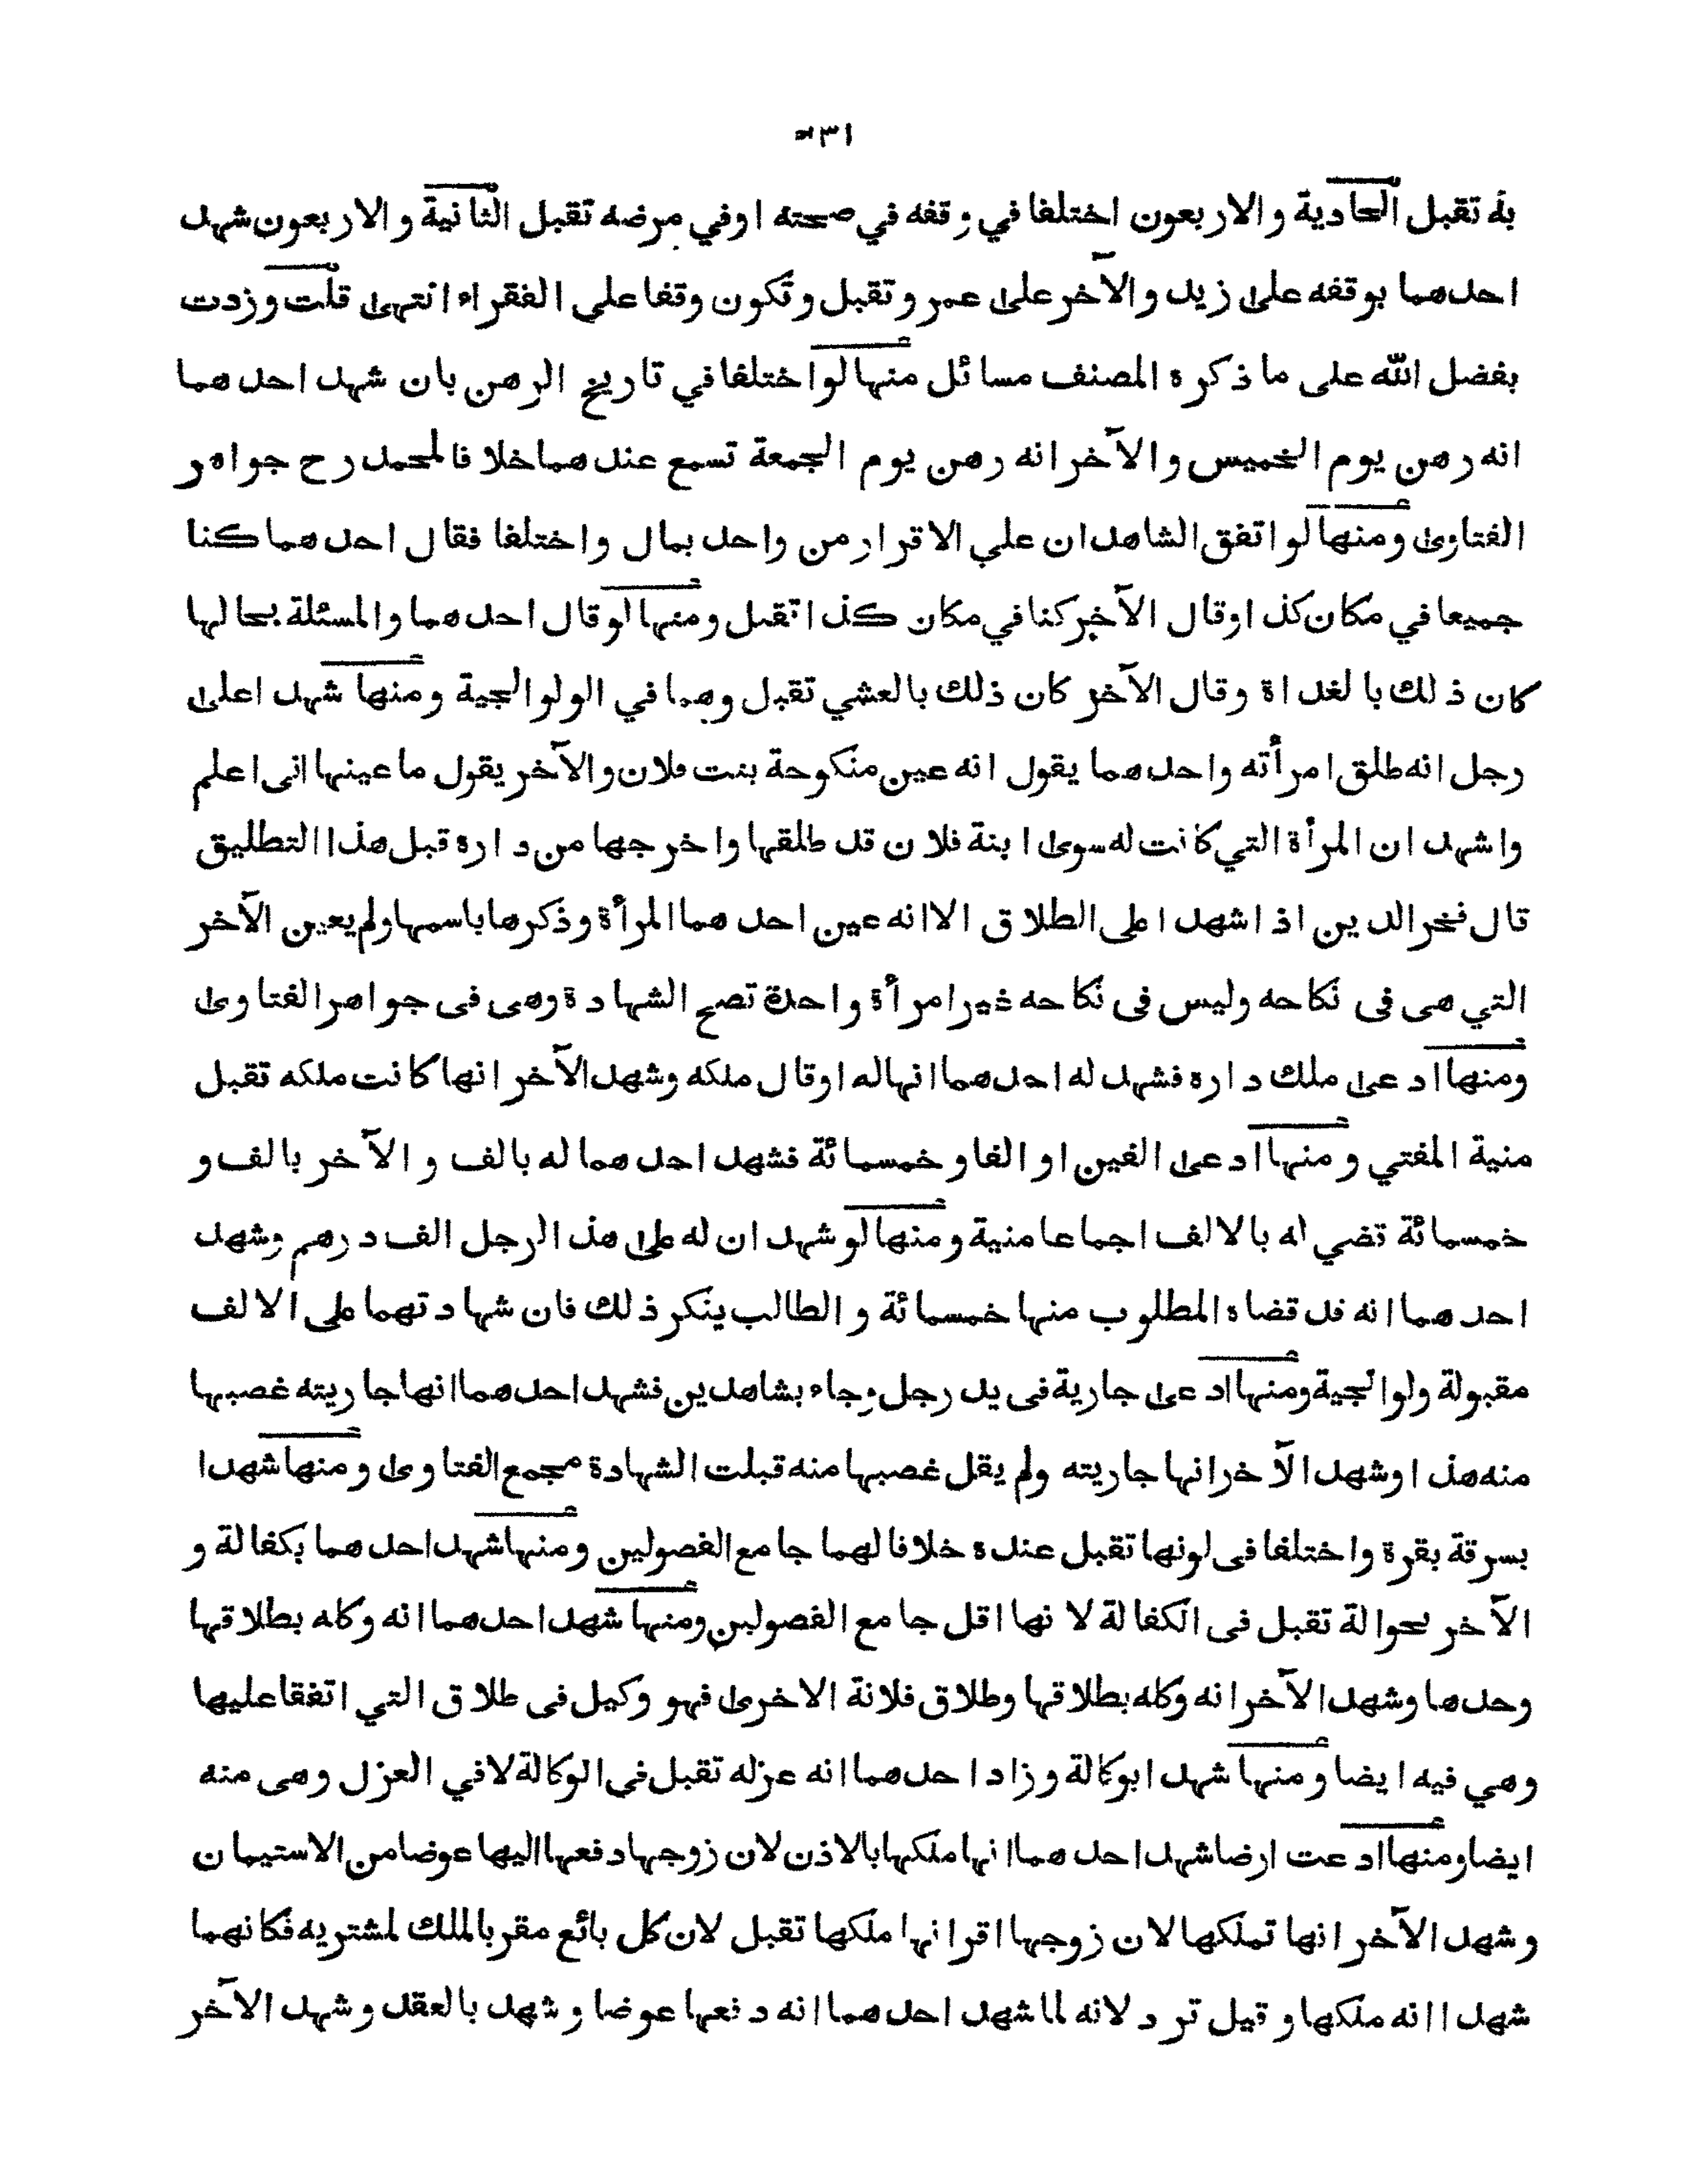 ۳۱
به تقبل الحادية والاربعون اختلفا في وقفه في صحته اوفي مرضه تقبل الثانية والاربعون شهد
احدهما بوقفه على زيد والآخر على عمرو تقبل وتكون وقفا علي الفقراء انتهى قلت وزدت
بفضل الله على ما ذكره المصنف مسائل منها لو اختلفا في تاريخ الرهن بان شهد احدهما
انه رهن يوم الخميس والآخر انه رهن يوم الجمعة تسمع عندهما خلافا لمحمد رح جواهر
الفتاوى ومنها لو اتفق الشاهدان علي الاقرار من واحد بمال واختلفا فقال احدهما كنا
جميعا في مكان كذا وقال الآخر كنا في مكان كذا تقبل ومنها لو قال احدهما والمسئلة بحالها
كان ذلك بالغداة وقال الآخر كان ذلك بالعشي تقبل وهما في الولوالجية ومنها شهدا على
رجل انه طلق امرأته واحدهما يقول انه عين منكوحة بنت فلان والآخر يقول ما عينها انى اعلم
واشهد ان المرأة التي كانت له سوى ابنة فلان قد طلقها واخرجها من داره قبل هذا التطليق
قال فخر الدين اذا شهدا على الطلاق الا انه عين احدهما المرأة وذكرها باسمها ولم يعين الآخر
التي هى فى نكاحه وليس فى نكاحه غير امرأة واحدة تصح الشهادة وهى فى جواهر الفتاوى
ومنها ادعى ملك داره فشهد له احدهما انها له او قال ملكه وشهد الآخر انها كانت ملكه تقبل
منية المفتي ومنها ادعى الفين او الفا وخمسمائة فشهد احدهما له بالف والآخر بالف و
خمسمائة تقضي له بالالف اجماعا منية ومنها لو شهد ان له على هذا الرجل الف درهم وشهد
احدهما انه قد قضاه المطلوب منها خمسمائة والطالب ينكر ذلك فان شهادتهما على الالف
مقبولة ولوالجية ومنها ادعى جارية فى يد رجل وجاء بشاهدين فشهد احدهما انها جاريته غصبها
منه هذا وشهد الآخر انها جاريته ولم يقل غصبها منه قبلت الشهادة مجمع الفتاوى ومنها شهدا
بسرقة بقرة واختلفا فى لونها تقبل عنده خلافا لهما جامع الفصولين ومنها شهد احدهما بكفالة و
الآخر بحوالة تقبل فى الكفالة لانها اقل جامع الفصولين ومنها شهد احدهما انه وكله بطلاقها
وحدها وشهد الآخر انه وكله بطلاقها وطلاق فلانة الاخرى فهو وكيل فى طلاق التي اتفقا عليها
وهي فيه ايضا ومنها شهد ابوكالة وزاد احدهما انه عزله تقبل فى الوكالة لا في العزل وهى منه
ايضا ومنها ادعت ارضا شهد احدهما انها ملكها بالاذن لان زوجها دفعها اليها عوضا من الاستيمان
وشهد الآخر انها تملكها لان زوجها اقر انها ملكها تقبل لان كل بائع مقر بالملك لمشتريه فكانهما
شهدا انه ملكها وقيل ترد لانه لما شهد احدهما انه دفعها عوضا وشهد بالعقد وشهد الآخر